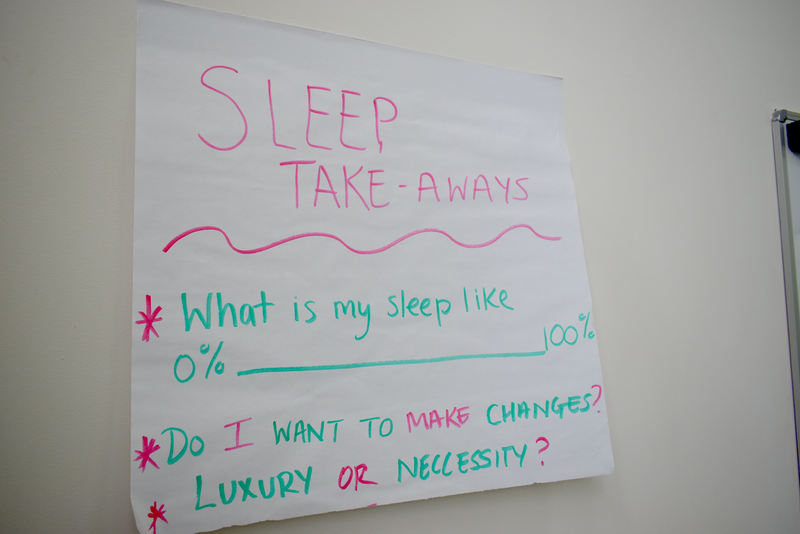 SLEEP
TAKE-AWAYS
* What is my sleep like
0% 100%
* Do I WANT TO MAKE CHANGES?
* LUXURY OR NECCESSITY?